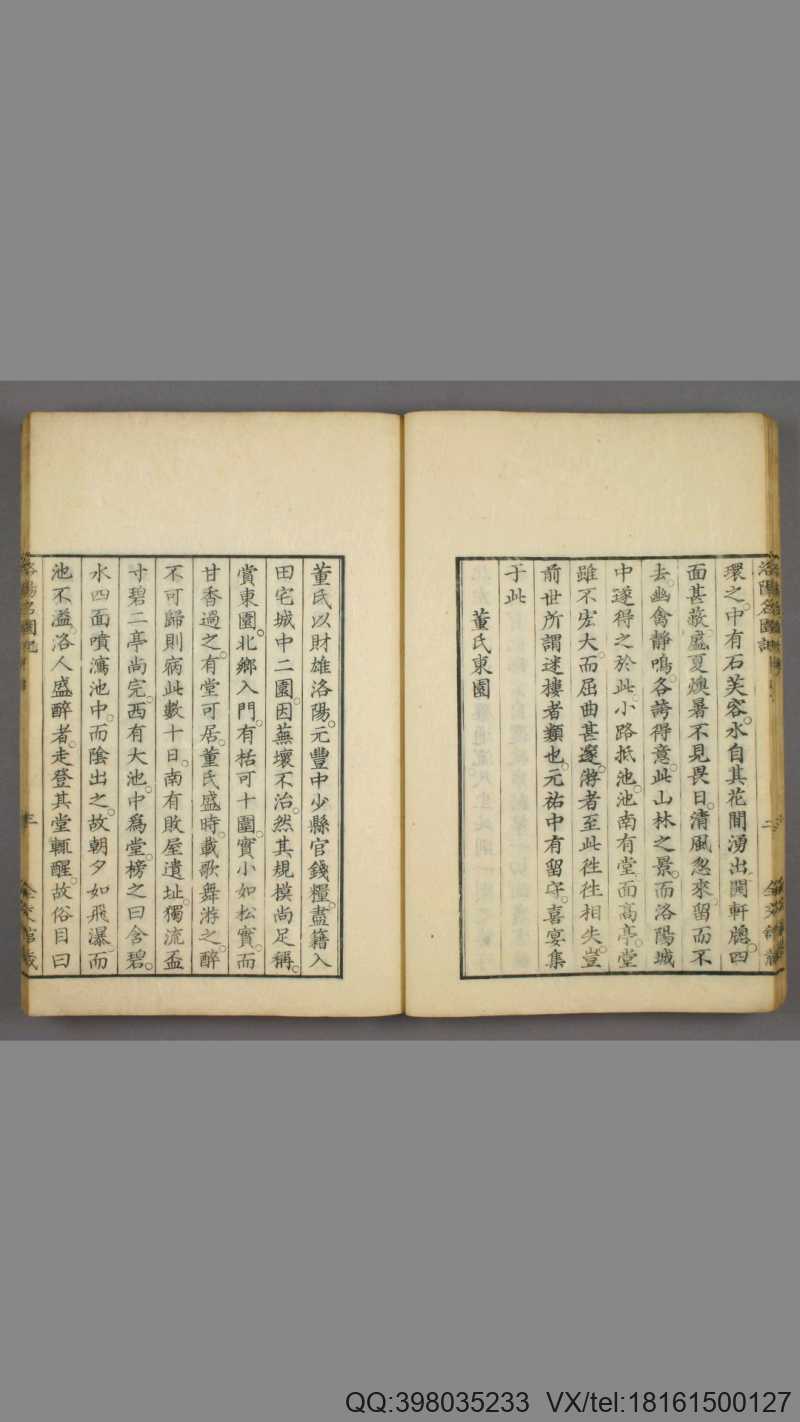 環之。中有石芙蓉。水自其花間湧出。開軒牕。四
面甚敞。盛夏燠暑不見畏日。清風忽來。留而不
去。幽禽靜鳴。各誇得意。此山林之景。而洛陽城
中遂得之於此。小路抵池。池南有堂。面高亭。堂
雖不宏大。而屈曲甚邃。游者至此往往相失。豈
前世所謂迷樓者類也。元祐中有留守。喜宴集
于此
董氏東園
董氏以財雄洛陽。元豐中少縣官錢糧。盡籍入
田宅城中二園。因蕪壞不治。然其規模尚足稱。
賞東園。北鄉入門。有栝可十圍。實小如松實。而
甘香過之。有堂可居。董氏盛時。載歌舞游之。醉
不可歸則病此數十日。南有敗屋遺址。獨流盃
寸碧二亭尚完。西有大池。中爲堂。榜之曰含碧。
水四面噴瀉池中。而陰出之。故朝夕如飛瀑。而
池不溢。洛人盛醉者。走登其堂輒醒。故俗目曰
洛陽名園記
QQ:398035233 VX/tel:18161500127